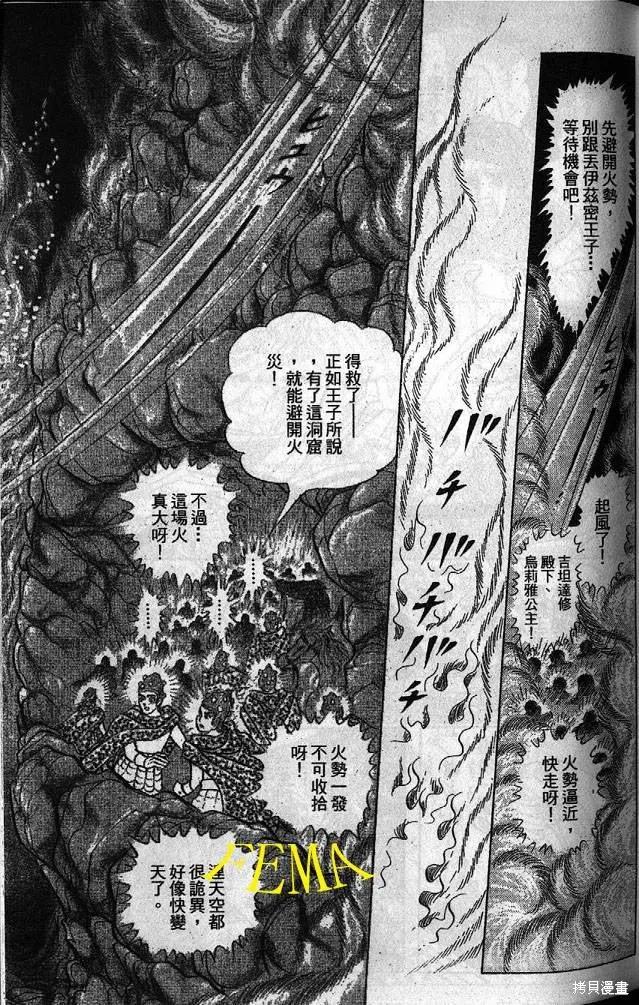 先避開火勢，
別跟丟伊茲密王子…
等待機會吧！
ヒュウ
起風了！
吉坦達修
殿下、
烏莉雅公主！
火勢逼近，
快走呀！
バチ
バチ
バチ
ヒュウ
得救了——
正如王子所說
，有了這洞窟
，就能避開火
災！
不過…
這場火
真大呀！
………
………
………
火勢一發
不可收拾
呀！
天空都
很詭異，
好像快變
天了。
FEMA
拷貝漫畫